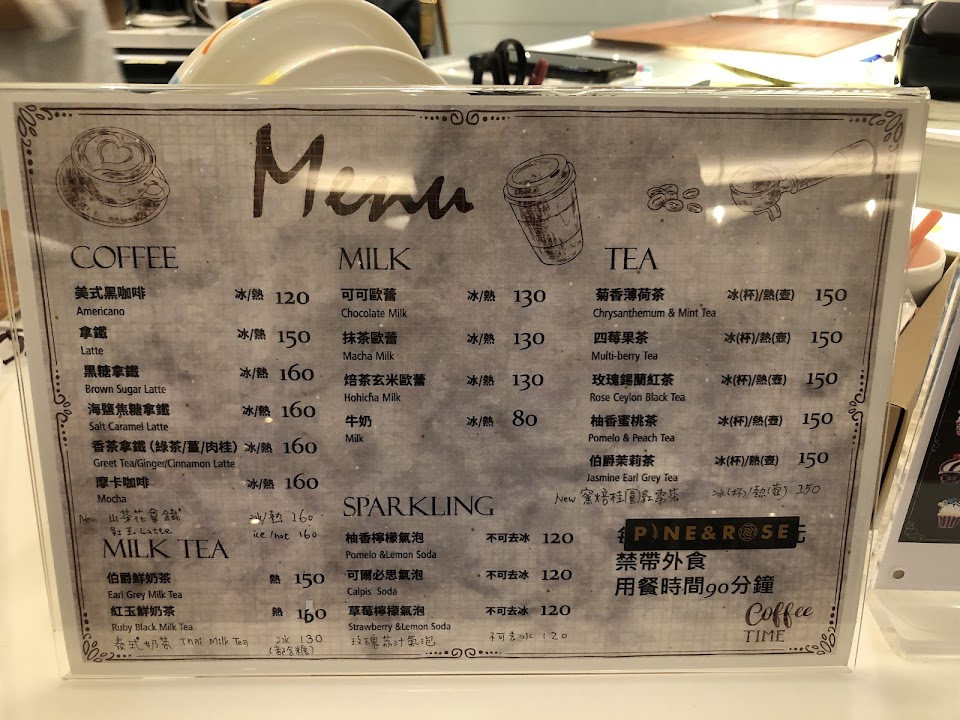 Menu
COFFEE
美式黑咖啡 冰/熱 120
Americano
拿鐵 冰/熱 150
Latte
黑糖拿鐵 冰/熱 160
Brown Sugar Latte
海鹽焦糖拿鐵 冰/熱 160
Salt Caramel Latte
香茶拿鐵 (綠茶/薑/肉桂) 冰/熱 160
Greet Tea/Ginger/Cinnamon Latte
摩卡咖啡 冰/熱 160
Mocha
New 山茶花拿鐵 冰/熱 160
紅玉 Latte ice/hot 160
MILK TEA
伯爵鮮奶茶 熱 150
Earl Grey Milk Tea
紅玉鮮奶茶 熱 160
Ruby Black Milk Tea
泰式奶茶 Thai Milk Tea 冰 130
(都含糖)
MILK
可可歐蕾 冰/熱 130
Chocolate Milk
抹茶歐蕾 冰/熱 130
Macha Milk
焙茶玄米歐蕾 冰/熱 130
Hohicha Milk
牛奶 冰/熱 80
Milk
SPARKLING
柚香檸檬氣泡 不可去冰 120
Pomelo &Lemon Soda
可爾必思氣泡 不可去冰 120
Calpis Soda
草莓檸檬氣泡 不可去冰 120
Strawberry &Lemon Soda
玫瑰茄汁氣泡 不可去冰 120
TEA
菊香薄荷茶 冰(杯)/熱(壺) 150
Chrysanthemum & Mint Tea
四莓果茶 冰(杯)/熱(壺) 150
Multi-berry Tea
玫瑰錫蘭紅茶 冰(杯)/熱(壺) 150
Rose Ceylon Black Tea
柚香蜜桃茶 冰(杯)/熱(壺) 150
Pomelo & Peach Tea
伯爵茉莉茶 冰(杯)/熱(壺) 150
Jasmine Earl Grey Tea
New 窯焙桂圓紅棗茶 冰(杯)/熱(壺) 150
每 PINE&ROSE 元
禁帶外食
用餐時間90分鐘
Coffee
TIME